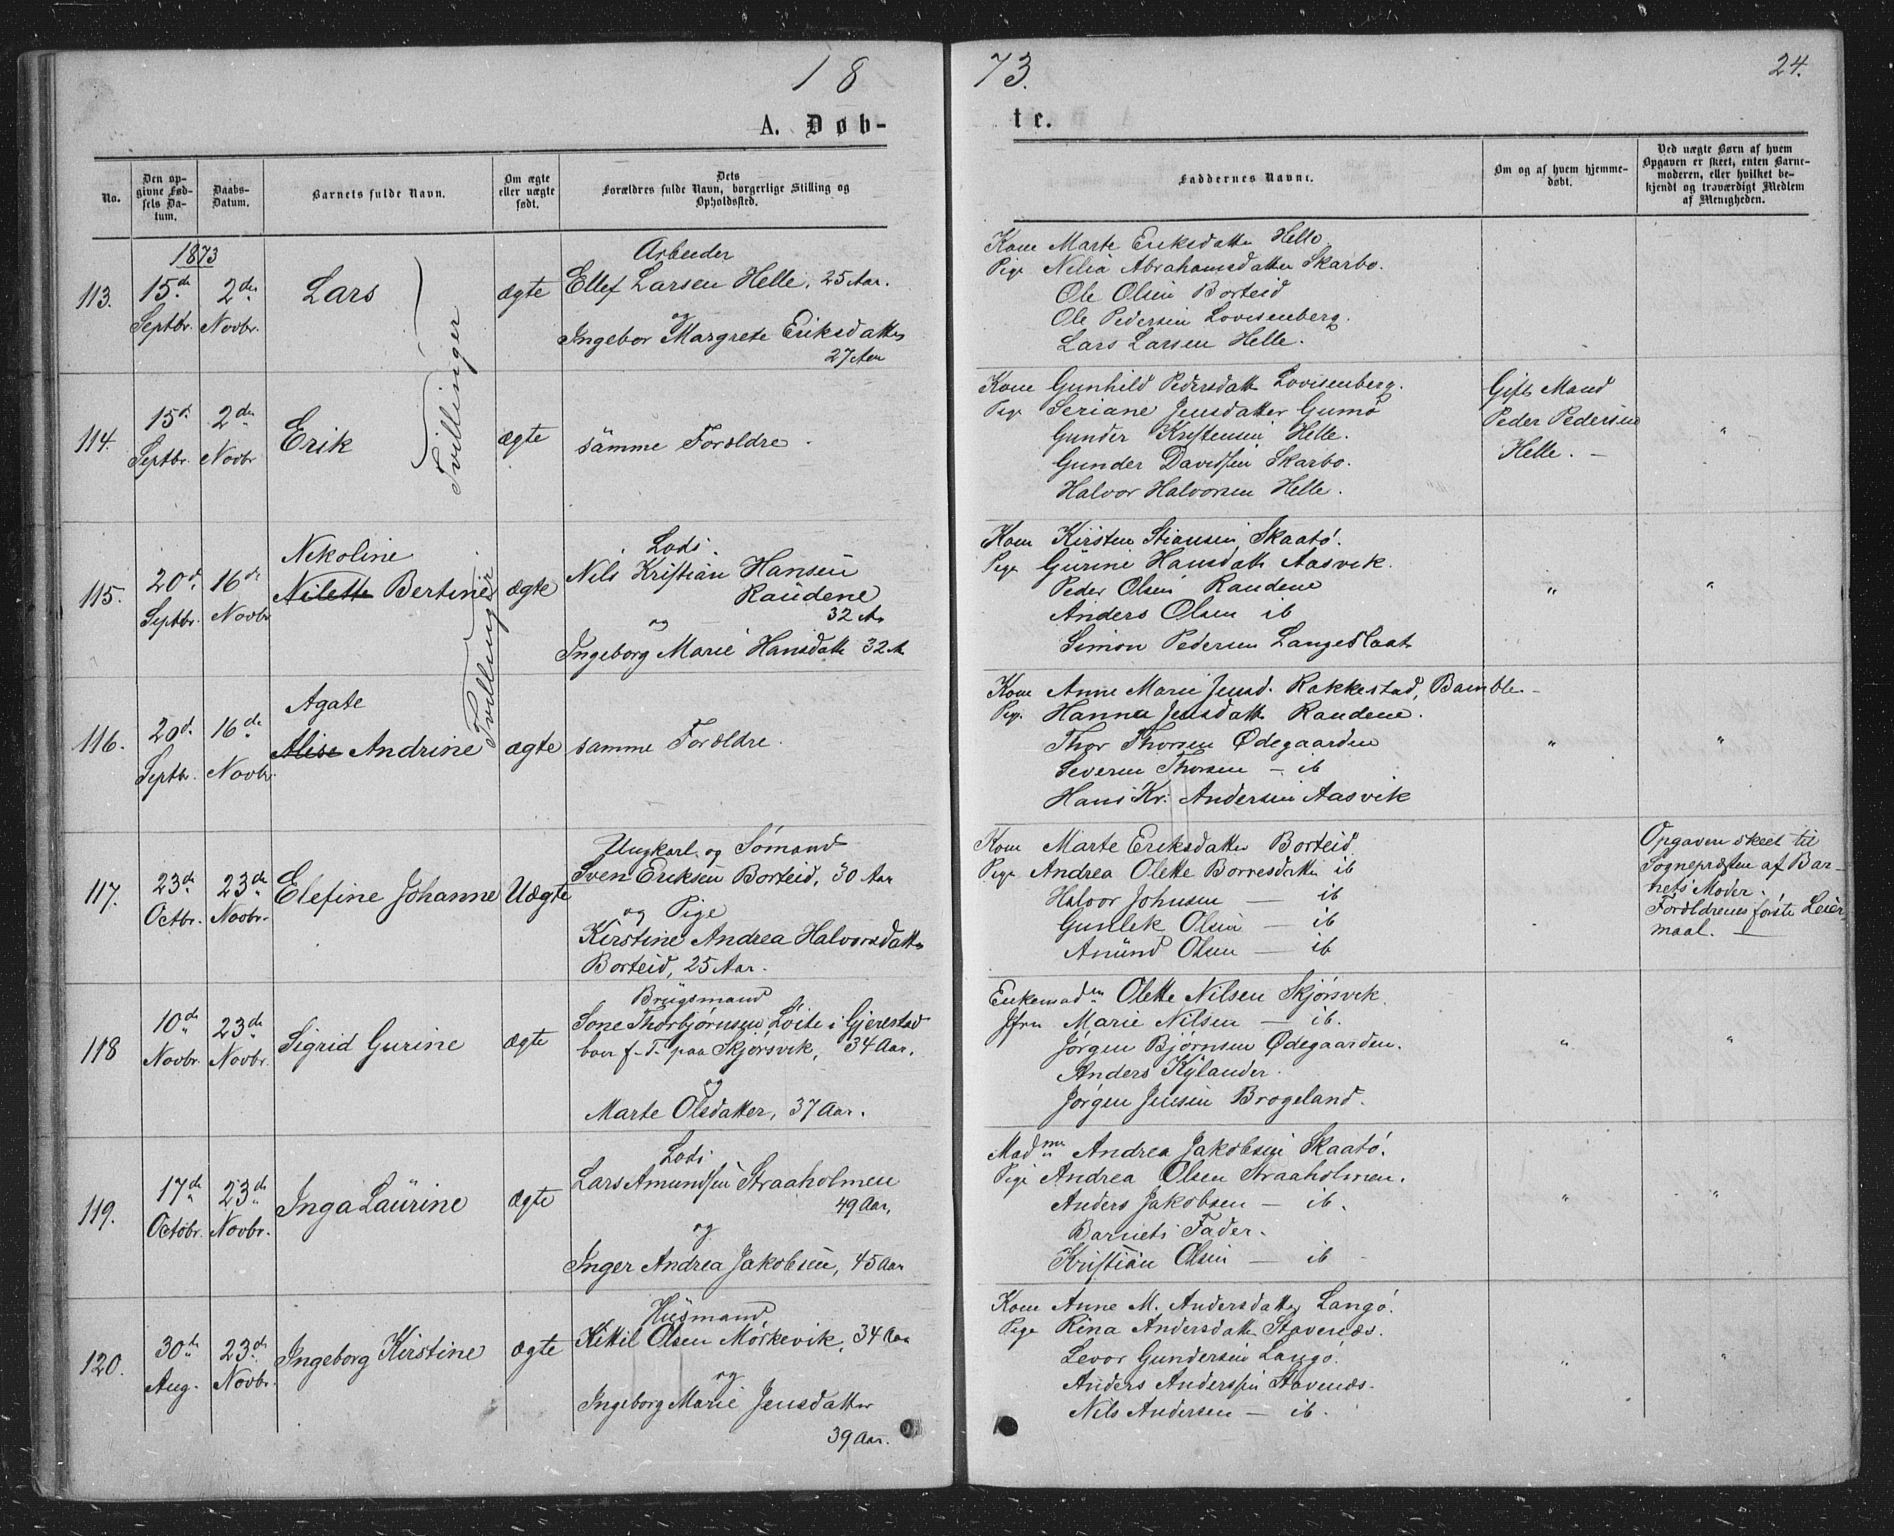 18 73. 24.
A. Døb- te.
No.
Den opgivne Fødsels Datum.
Daabs-Datum.
Barnets fulde Navn.
Om ægte eller uægte født.
Dets Forældres fulde Navn, borgerlige Stilling og Opholdssted.
Faddernes Navne.
Om og af hvem hjemmedøbt.
Ved uægte Børn af hvem Opgaven er skeet, enten Barnemoderen, eller hvilket bekjendt og troværdigt Medlem af Menigheden.
1873
113. 15de Septbr. 2den Novbr. Lars ægte
Tvillinger
Arbeider
Ellef Larsen Helle, 25 Aar.
og
Ingebor Margrete Eriksdatter
27 Aar
Kone Marte Eriksdatter Helle
Pige Nilia Abrahamsdatter Skarbo.
Ole Olsen Borteid
Ole Pedersen Lovisenberg.
Lars Larsen Helle.
114. 15d. Septbr. 2den Novbr Erik ægte
samme Forældre.
Kone Gunhild Pedersdatt Lovisenberg.
Pige Seriane Jensdatter Gumø
Gunder Kristensen Helle.
Gunder Davidsen Skarbo.
Halvor Halvorsen Helle.
Gift Mand
Peder Pedersen
Helle. —
"
115. 20d. Septbr. 16de Novbr
Nekoline
Nilette Bertine ægte
Tvillinger
Lods
Nils Kristian Hansen
Raudene
32 Aar
og
Ingeborg Marie Hansdatt 32 A
Kone Kirsten Stiansen Skaatø.
Pige Gurine Hansdatt Aasvik.
Peder Olsen Raudene
Anders Olsen ib
Simon Pedersen Langeslaat
" "
116. 20d. Septbr. 16de Novbr.
Agate
Alise Andrine ægte
samme Forældre.
Kone Anne Marie Jensd. Rakkestad, Bamble —
Pige Hanna Jensdatt Raudene.
Thor Thorsen Ødegaarden
Severin Thorsen — ib
Hans Kr. Andersen Aasvik
" "
117. 23de Octbr. 23de Novbr. Elefine Johanne Uægte
Ungkarl og Sømand
Sven Eriksen Borteid, 30 Aar
og Pige
Kirstine Andrea Halvorsdatter
Borteid, 25 Aar.
Kone Marte Eriksdatter Borteid,
Pige Andrea Olette Borresdatter ib
Halvor Johnsen — ib
Gunlek Olsen — ib
Amund Olsen — ib
Opgaven skeet til
Sognepræsten af Bar-
nets Moder.
Forældrenes første Leier-
maal. —
118 10de Novbr. 23de Novbr. Sigrid Gurine ægte
Brugsmand
Sone Thorbjørnsen Løite i Gjerestad
boer f. T. paa Skjørsvik, 34 Aar.
og
Marte Olsdatter, 37 Aar.
Enkemadm Olette Nilsen Skjørsvik
Jfru Marie Nilsen — ib.
Jørgen Bjørnsen Ødegaarden.
Anders Kylander.
Jørgen Jensen Brogeland.
" "
119. 17de Octobr. 23de Novbr. Inga Laurine ægte
Lods
Lars Amundsen Straaholmen
49 Aar,
og
Inger Andrea Jakobsen, 45 Aar
Madme Andrea Jakobsen Skaatø.
Pige Andrea Olsen Straaholmen.
Anders Jakobsen — ib.
Barnets Fader.
Kristian Olsen — ib
" "
120. 30de Aug. 23de Novbr. Ingeborg Kirstine ægte
Husmand,
Kittil Olsen Mørkevik, 34 Aar
og
Ingeborg Marie Jensdatter
39 Aar.
Kone Anne M. Andersdatter Langø.
Pige Rina Andersdatt Stavenæs.
Levor Gundersen Langø.
Anders Anderssen Stavenæs.
Nils Andersen — ib.
" "